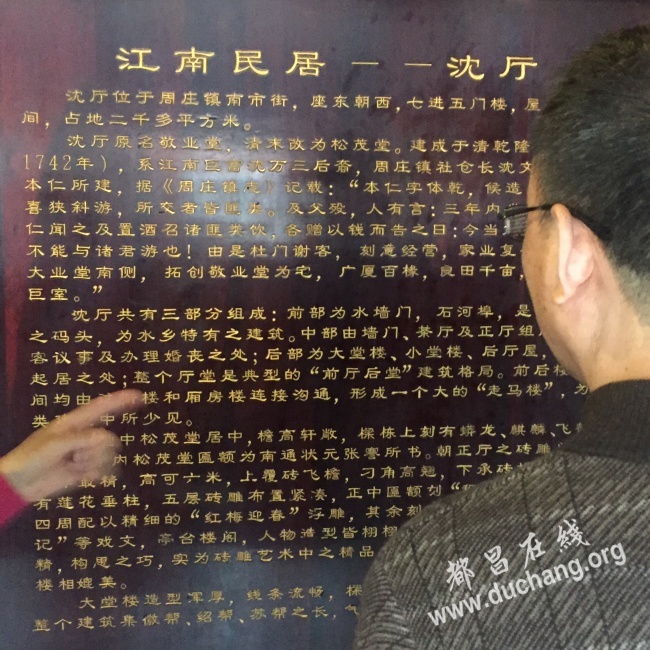 江南民居——沈厅
沈厅位于周庄镇南市街，座东朝西，七进五门楼，屋
间，占地二千多平方米。
沈厅原名敬业堂，清末改为松茂堂。建成于清乾隆
1742年），系江南巨富沈万三后裔，周庄镇社仓长沈文
本仁所建，据《周庄镇志》记载：“本仁字体乾，候造
喜狭斜游，所交者皆匪类。及父殁，人有言：三年内
仁闻之及置酒召诸匪类饮，各赠以钱而告之日：今当
不能与诸君游也！由是杜门谢客，刻意经营，家业复
大业堂南侧，拓创敬业堂为宅，广厦百椽，良田千亩，
巨室。”
沈厅共有三部分组成：前部为水墙门，石河埠，是
之码头，为水乡特有之建筑。中部由墙门、茶厅及正厅组
客议事及办理婚丧之处；后部为大堂楼、小堂楼、后厅屋，
起居之处；整个厅堂是典型的“前厅后堂”建筑格局。前后楼
间均由 楼和厢房楼连接沟通，形成一个大的“走马楼”，为
类 中所少见。
中松茂堂居中，檐高轩敞，梁栋上刻有蟒龙、麒麟、飞
内松茂堂匾额为南通状元张謇所书。朝正厅之砖雕
最精，高可六米，上覆砖飞檐，刁角高翘，下承砖
有莲花垂柱，五层砖雕布置紧凑，正中匾额刻“
四周配以精细的“红梅迎春”浮雕，其余刻
记”等戏文，亭台楼阁，人物造型皆栩栩
精，构思之巧，实为砖雕艺术中之精品
楼相媲美。
大堂楼造型浑厚，线条流畅，梁
整个建筑集徽帮、绍帮、苏帮之长，气
都昌在线
www.duchang.org